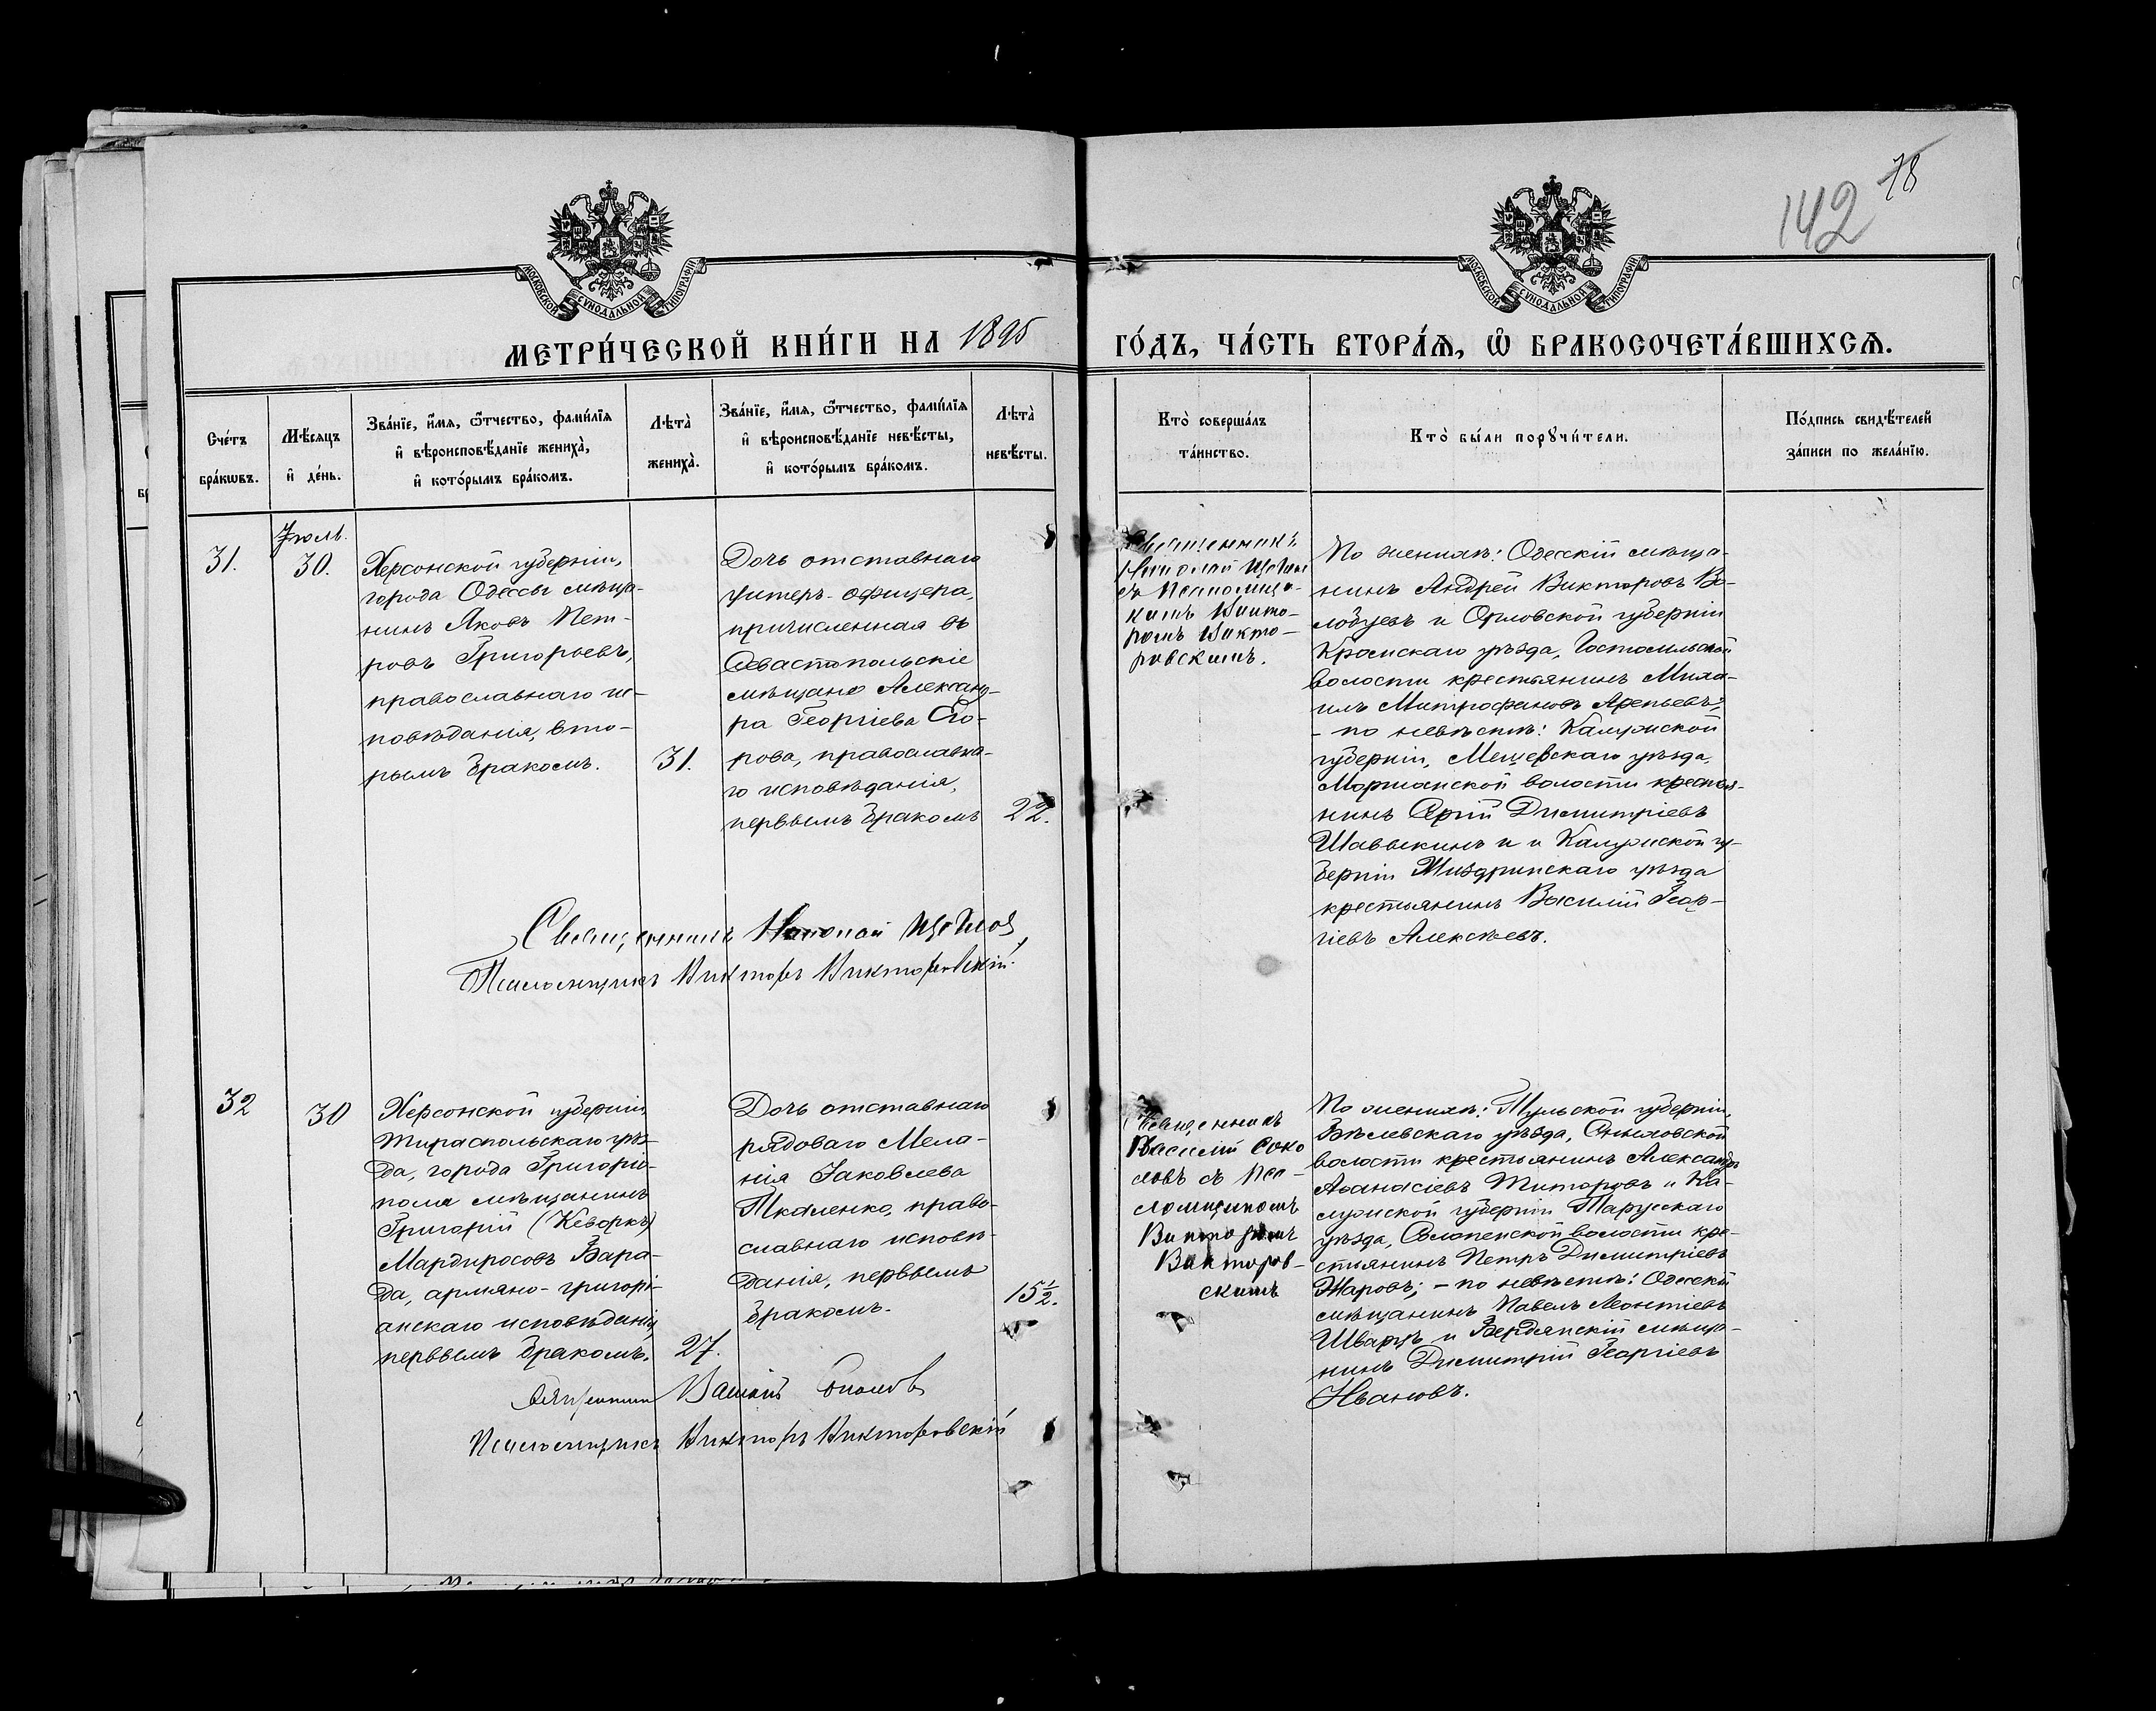 142 78
МОСКОВСКОЙ СѴНОДАЛЬНОЙ ТИПОГРАФІИ
МОСКОВСКОЙ СѴНОДАЛЬНОЙ ТИПОГРАФІИ
МЕТРИ́ЧЕСКОЙ КНИ́ГИ НА 1895
ГО́ДЪ, ЧА́СТЬ ВТОРА́Ѧ, Ѽ БРАКОСОЧЕТА́ВШИХСѦ.
Сче́тъ
бра́кѡвъ.
Мѣ́сѧцъ
и҆ де́нь.
Зва́нїе, и҆́мѧ, ѻ҆́тчество, фами́лїѧ
и҆ вѣроисповѣ́данїе жениха̀,
и҆ кото́рымъ бра́комъ.
Лѣта̀
жениха̀.
Зва́нїе, и҆́мѧ, ѻ҆́тчество, фами́лїѧ
и҆ вѣроисповѣ́данїе невѣ́сты,
и҆ кото́рымъ бра́комъ.
Лѣта̀
невѣ́сты.
Кто̀ соверша́лъ
та́инство.
Кто̀ бы́ли порꙋчи́тели.
По́дпись свидѣ́телей
за́писи по жела́нїю.
31.
Іюль.
30.
Херсонской губерніи,
города Одессы мѣща-
нинъ Яковъ Пет-
ровъ Григорьевъ,
православнаго ис-
повѣданія, вто-
рымъ бракомъ.
31.
Дочь отставнаго
унтеръ-офицера,
причисленная въ
Севастопольскіе
мѣщане Александ-
ра Георгіева Его-
рова, православна-
го исповѣданія,
первымъ бракомъ
22.
Священникъ
Николай
съ Псаломщи-
комъ Викто-
ромъ Викто-
ровскимъ.
По женихѣ: Одесскій мѣща-
нинъ Андрей Викторовъ Во-
лобуевъ и Орловской губерніи
Кромскаго уѣзда, Гостомльской
волости крестьянинъ Миха-
илъ Митрофановъ
- по невѣстѣ: Калужской
губерніи, Мещовскаго уѣзда,
волости крестья-
нинъ Сергій Димитріевъ
Шавыкинъ и и Калужской гу-
берніи Жиздринскаго уѣзда
крестьянинъ Василій Геор-
гіевъ Алексѣевъ.
Священникъ Николай
Псаломщикъ Викторъ Викторовскій.
32
30
Херсонской губерніи,
Тираспольскаго уѣз-
да, города Григоріо-
поля мѣщанинъ
Григорій (Кеворкъ)
Мардиросовъ Бара-
да, армяно-григорі-
анскаго исповѣданія,
первымъ бракомъ.
27.
Дочь отставнаго
рядоваго Мела-
нія Іаковлева
Ткаленко, право-
славнаго исповѣ-
данія, первымъ
бракомъ.
15 ½.
Священникъ
Василій Соко
ловъ съ Пса-
ломщикомъ
Викторомъ
Викторов-
скимъ
По женихѣ: Тульской губерніи,
Бѣлевскаго уѣзда,
волости крестьянинъ Александръ
Аѳанасіевъ Титоровъ и Ка-
лужской губерніи Тарусскаго
уѣзда, волости кре-
стьянинъ Петръ Димитріевъ
Жаровъ; - по невѣстѣ: Одесскій
мѣщанинъ Павелъ Леонтіевъ
Шварцъ и Бердянскій мѣща-
нинъ Димитрій Георгіевъ
Ивановъ.
Священникъ Василій Соколовъ
Псаломщикъ Викторъ Викторовскій